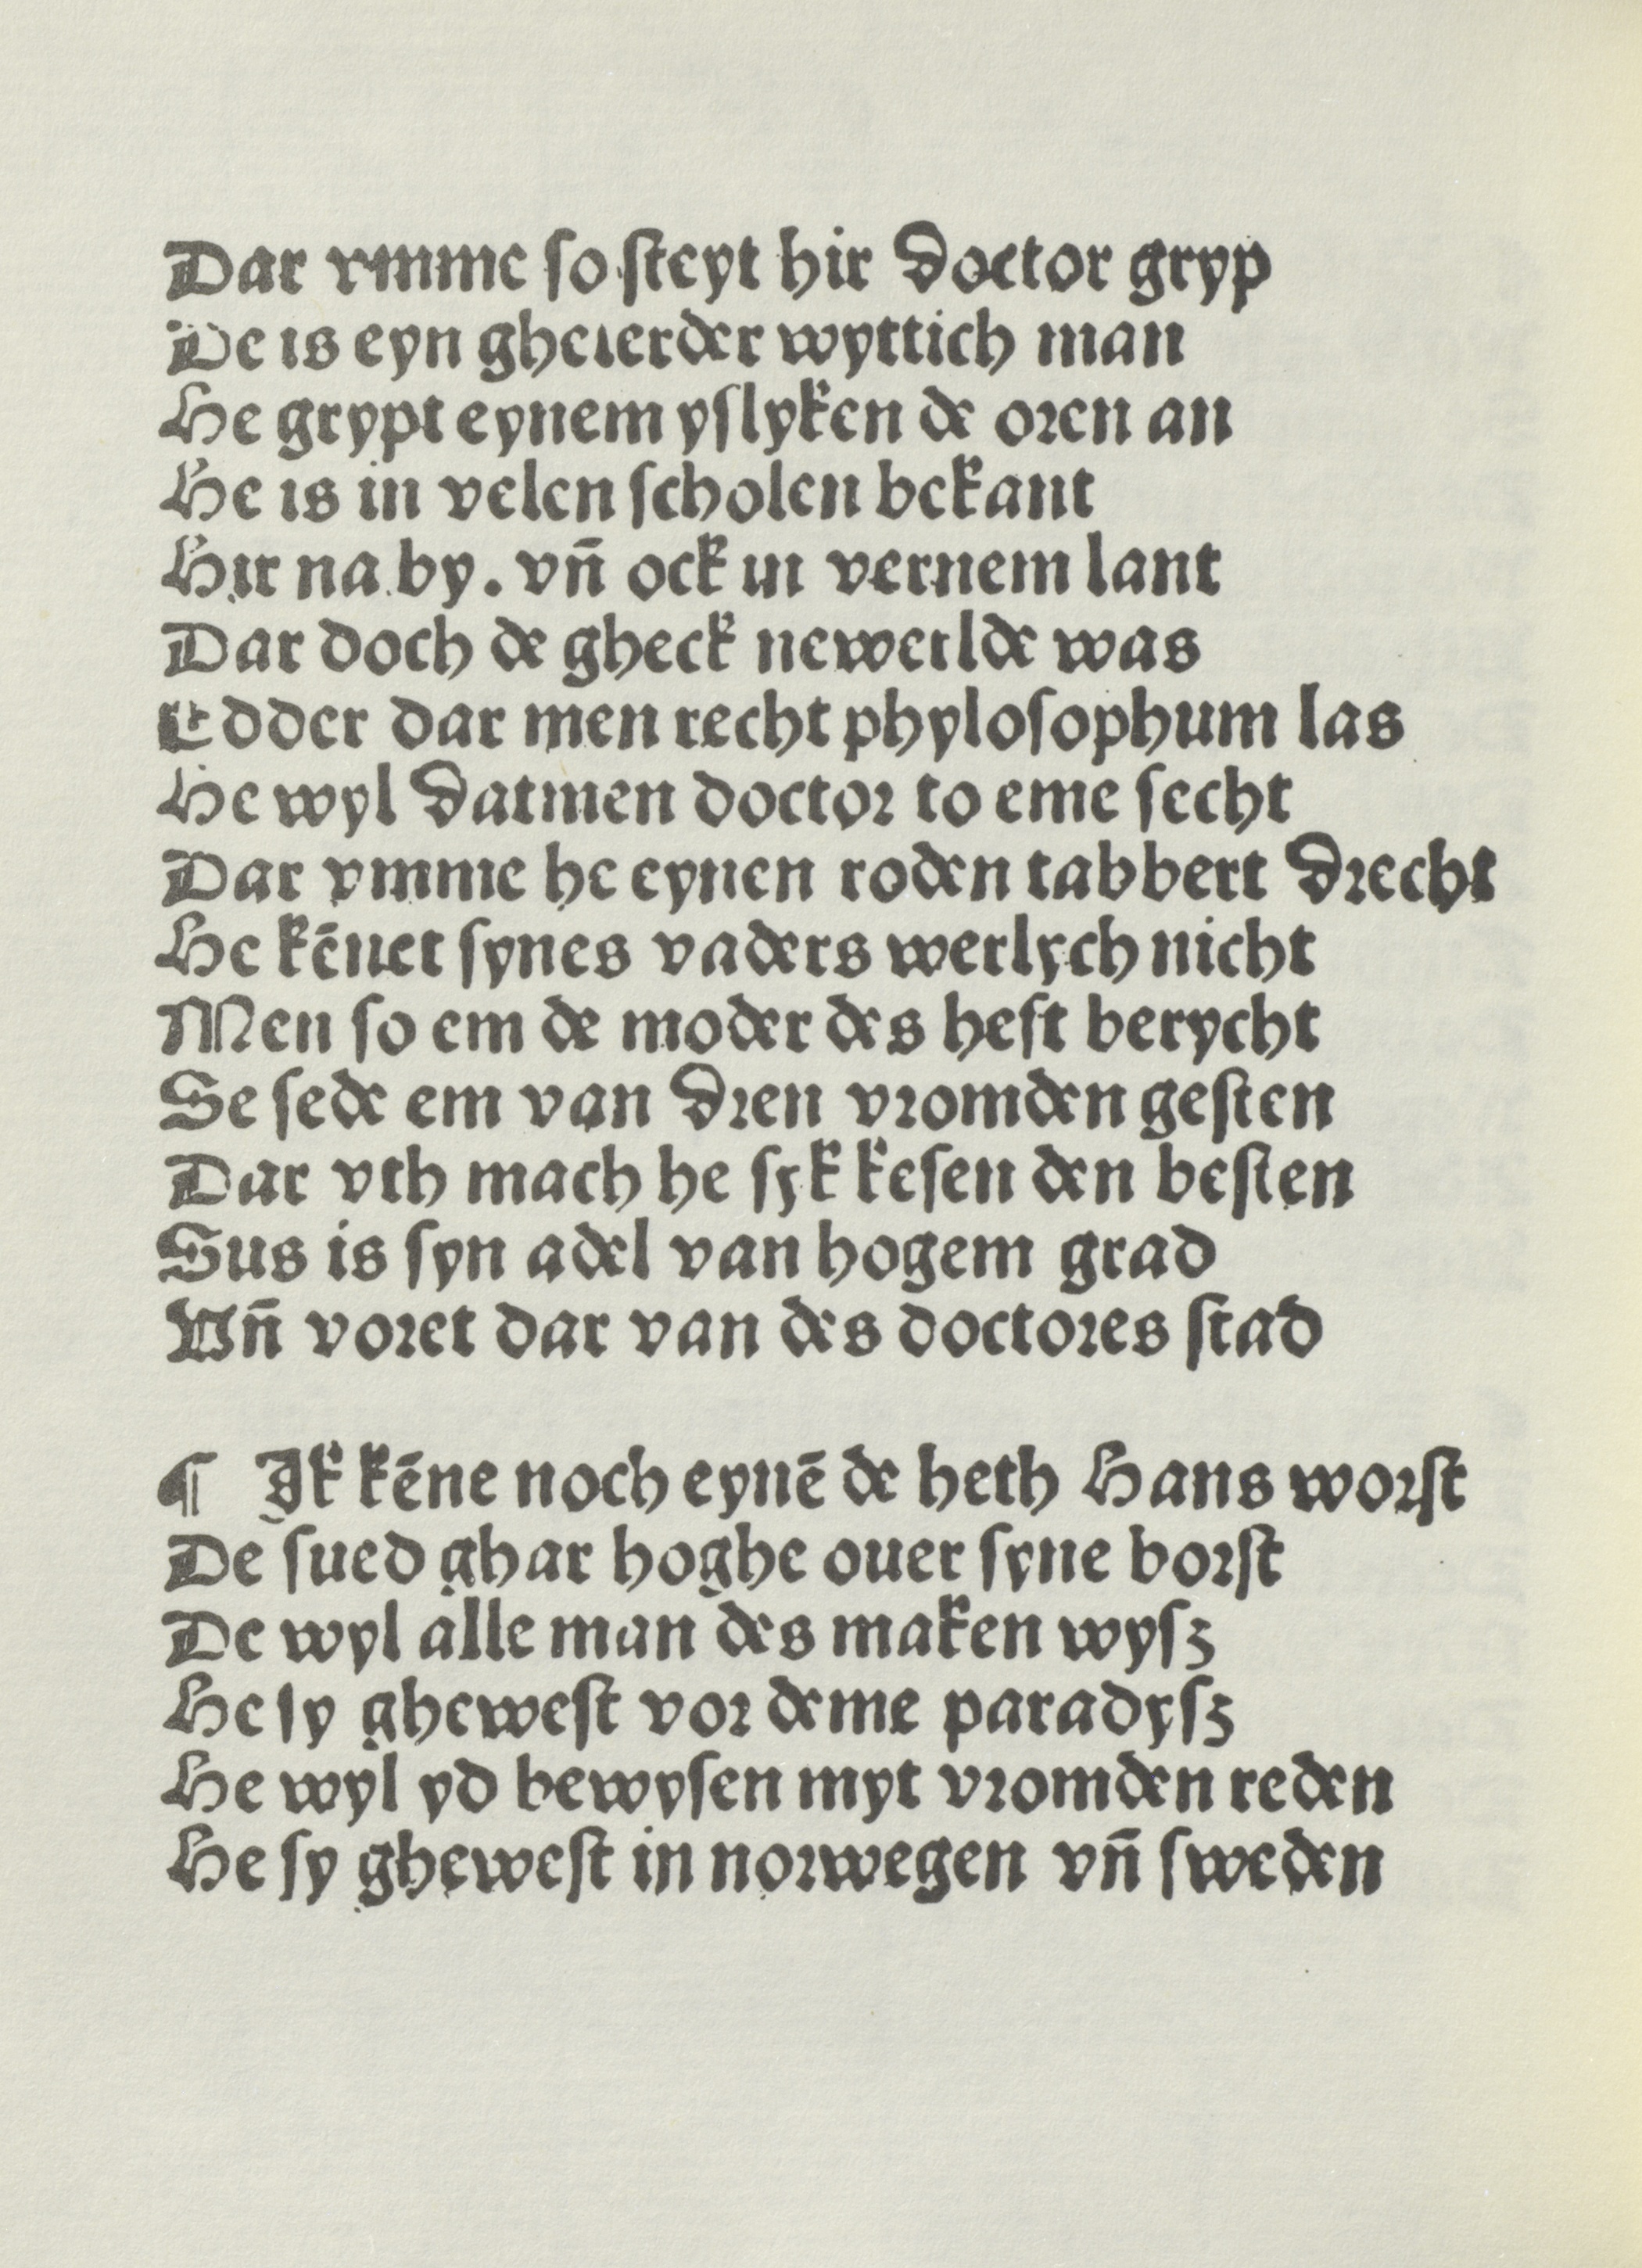 Dar vmme so steyt hir doctor gryp
De is eyn ghelerder wyttich man
He grypt eynem yſlyken de oren an
He is in velen ſcholen bekant
Hir na by. vn̄ ock in vernem lant
Dar doch de gheck newerlde was
Edder dar men recht phyloſophum las
He wyl datmen doctor to eme ſecht
Dar vmme he eynen roden tabbert drecht
He kēnet ſynes vaders werlych nicht
Men ſo em de moder des heft berycht
Se ſede em van dren vromden geſten
Dar vth mach he ſyk keſen den beſten
Sus is ſyn adel van hogem grad
Vn̄ voret dar van des doctores ſtad
¶ Ik kēne noch eynē de heth Hans worſt
De ſued ghar hoghe ouer ſyne borſt
De wyl alle man des maken wyſz
He ſy gheweſt vor deme paradyſz
He wyl yd bewyſen myt vromden reden
He ſy gheweſt in norwegen vn̄ ſweden